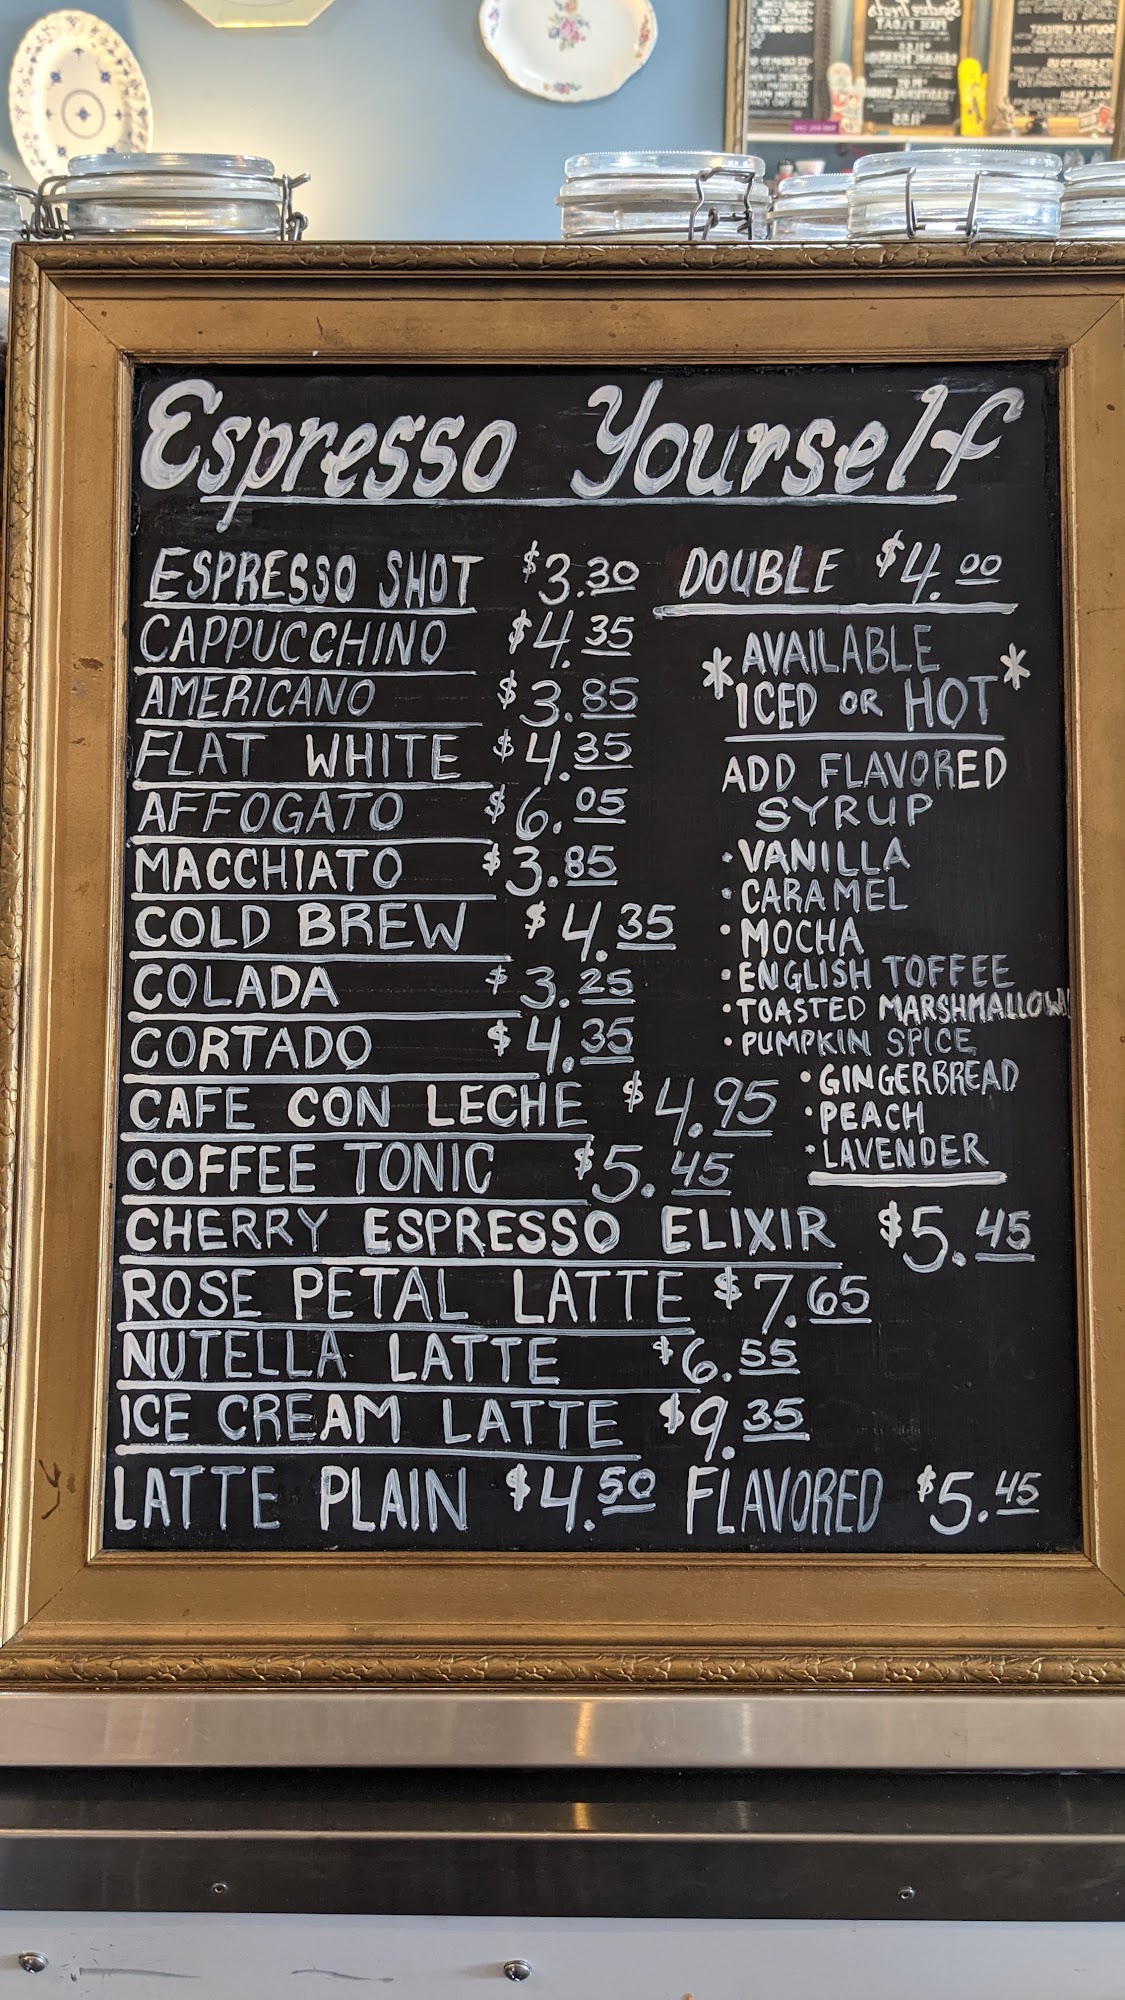 Espresso Yourself
ESPRESSO SHOT $3.30 DOUBLE $4.00
CAPPUCCHINO $4.35
AMERICANO $3.85
FLAT WHITE $4.35
AFFOGATO $6.05
MACCHIATO $3.85
COLD BREW $4.35
COLADA $3.25
CORTADO $4.35
CAFE CON LECHE $4.95
COFFEE TONIC $5.45
CHERRY ESPRESSO ELIXIR $5.45
ROSE PETAL LATTE $7.65
NUTELLA LATTE $6.55
ICE CREAM LATTE $9.35
LATTE PLAIN $4.50 FLAVORED $5.45
*AVAILABLE
ICED OR HOT*
ADD FLAVORED
SYRUP
• VANILLA
• CARAMEL
• MOCHA
• ENGLISH TOFFEE
• TOASTED MARSHMALLOW
• PUMPKIN SPICE
• GINGERBREAD
• PEACH
• LAVENDER